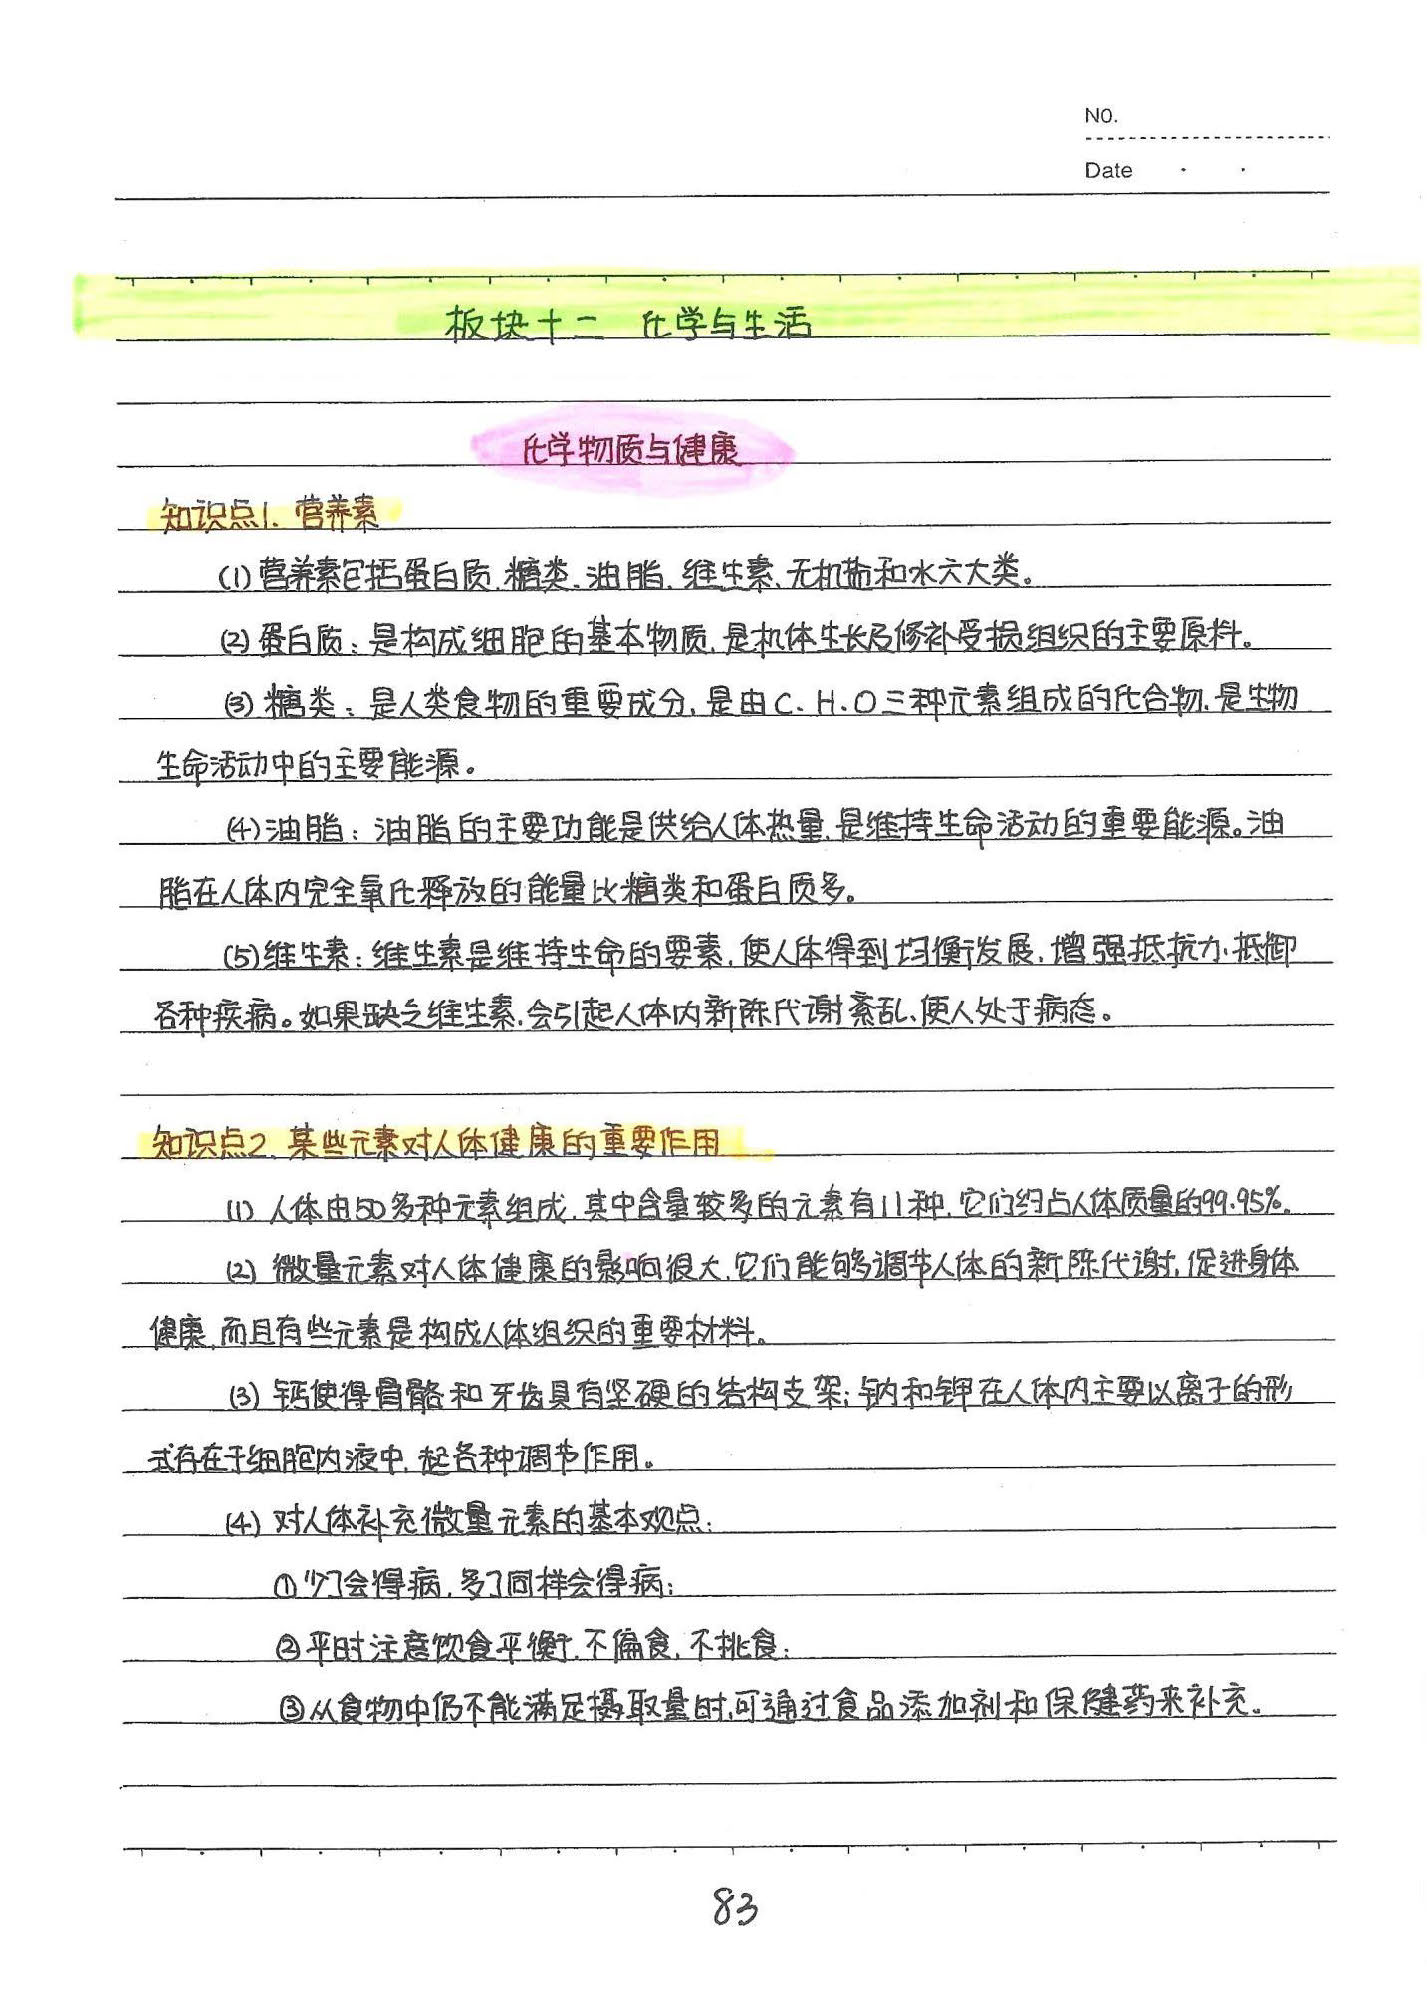 NO.
Date
板块十二 化学与生活
化学物质与健康
知识点1. 营养素
(1) 营养素包括蛋白质、糖类、油脂、维生素、无机盐和水六大类。
(2) 蛋白质：是构成细胞的基本物质，是机体生长及修补受损组织的主要原料。
(3) 糖类：是人类食物的重要成分，是由C、H、O三种元素组成的化合物，是生物
生命活动中的主要能源。
(4) 油脂：油脂的主要功能是供给人体热量，是维持生命活动的重要能源。油
脂在人体内完全氧化释放的能量比糖类和蛋白质多。
(5) 维生素：维生素是维持生命的要素，使人体得到均衡发展，增强抵抗力，抵御
各种疾病。如果缺乏维生素，会引起人体内新陈代谢紊乱，使人处于病态。
知识点2. 某些元素对人体健康的重要作用
(1) 人体由50多种元素组成，其中含量较多的元素有11种，它们约占人体质量的99.95%。
(2) 微量元素对人体健康的影响很大，它们能够调节人体的新陈代谢，促进身体
健康，而且有些元素是构成人体组织的重要材料。
(3) 钙使得骨骼和牙齿具有坚硬的结构支架；钠和钾在人体内主要以离子的形
式存在于细胞内液中，起各种调节作用。
(4) 对人体补充微量元素的基本观点：
①少了会得病，多了同样会得病；
②平时注意饮食平衡，不偏食，不挑食；
③从食物中仍不能满足摄取量时，可通过食品添加剂和保健药来补充。
83